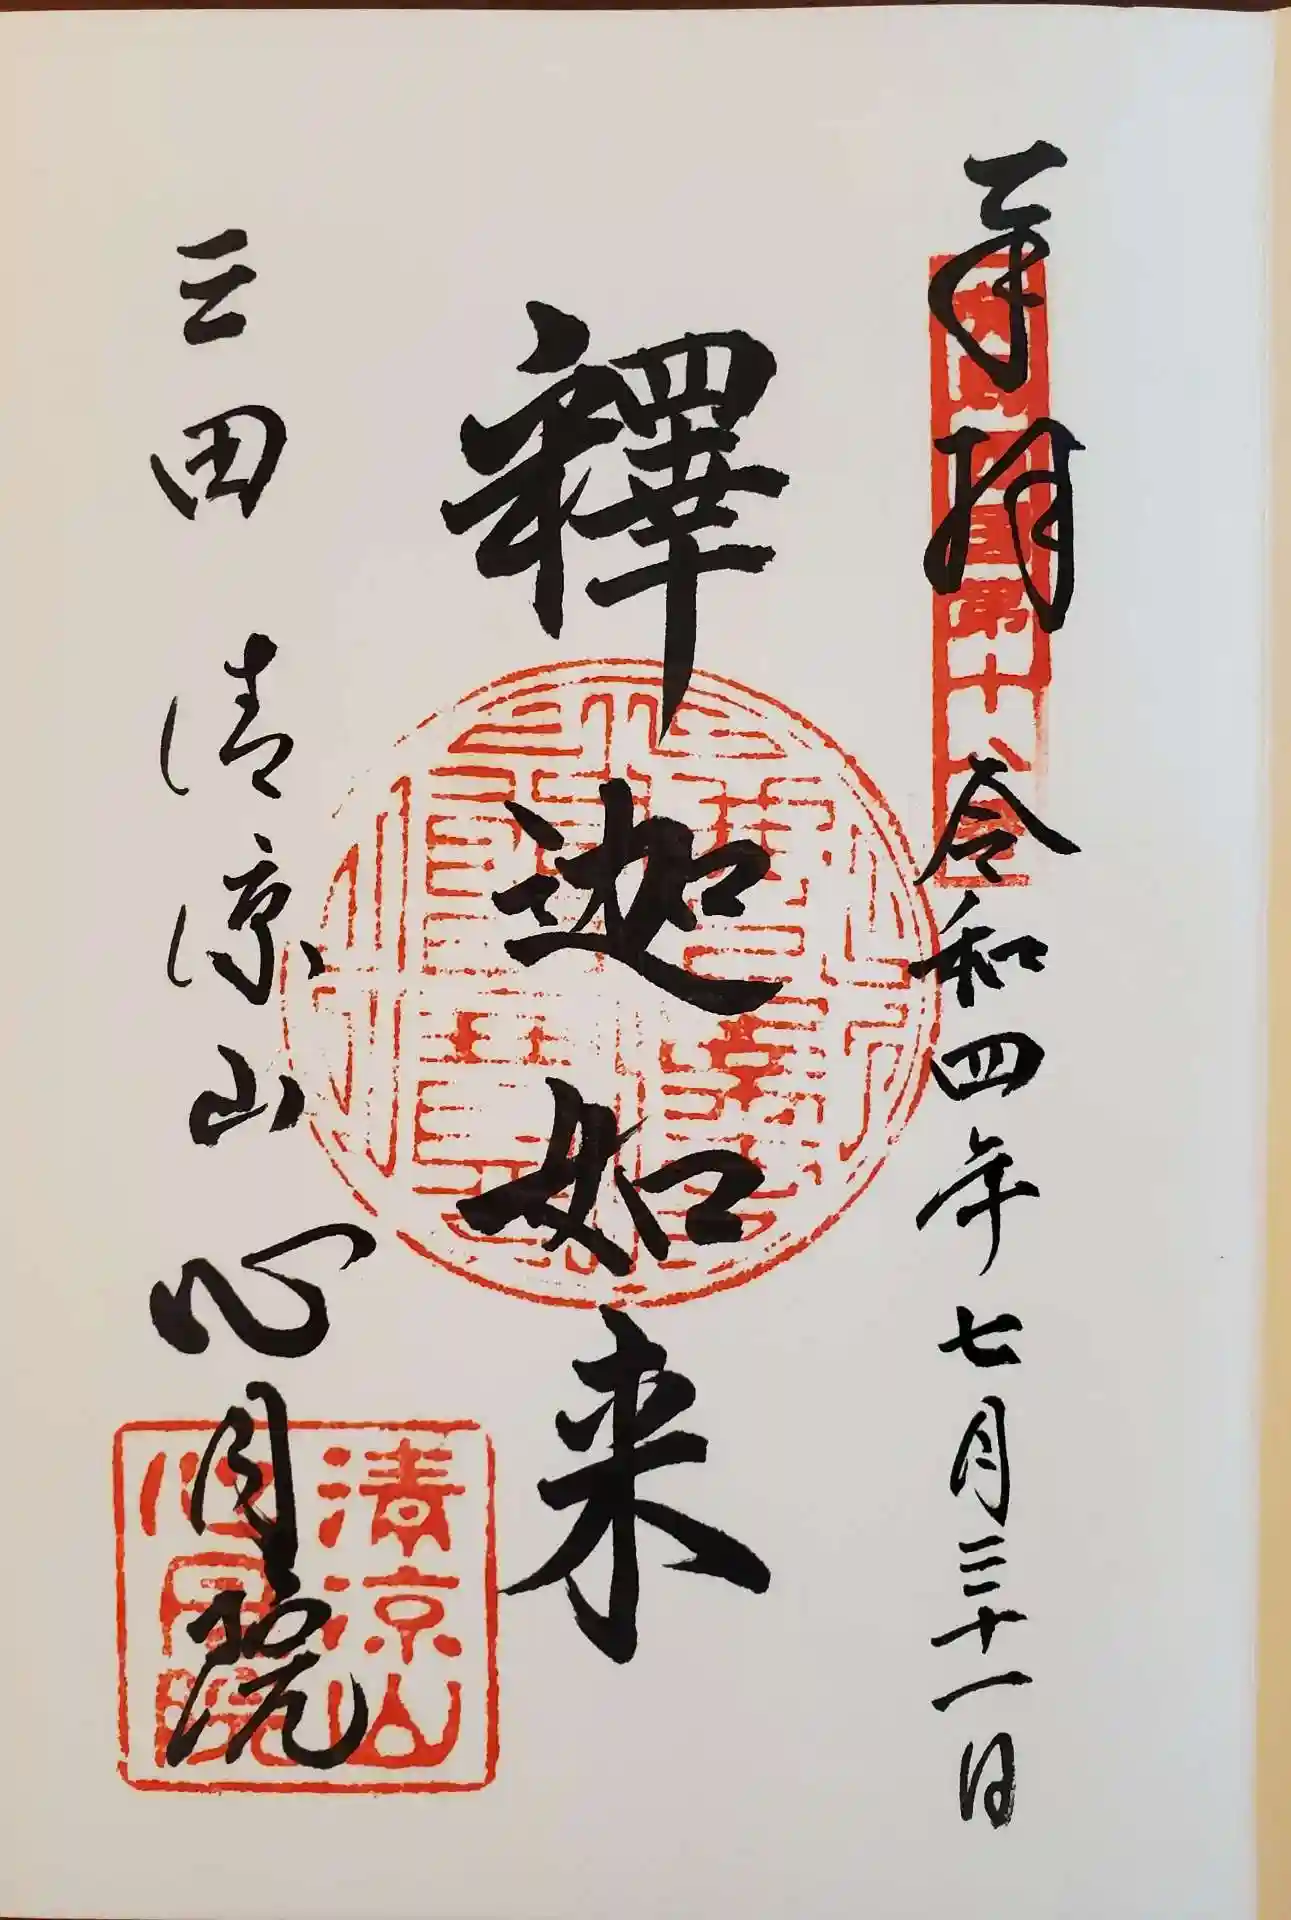 奉拝
令和四年七月三十一日
釋迦如来
三田 清凉山心月院
清凉山
心月院